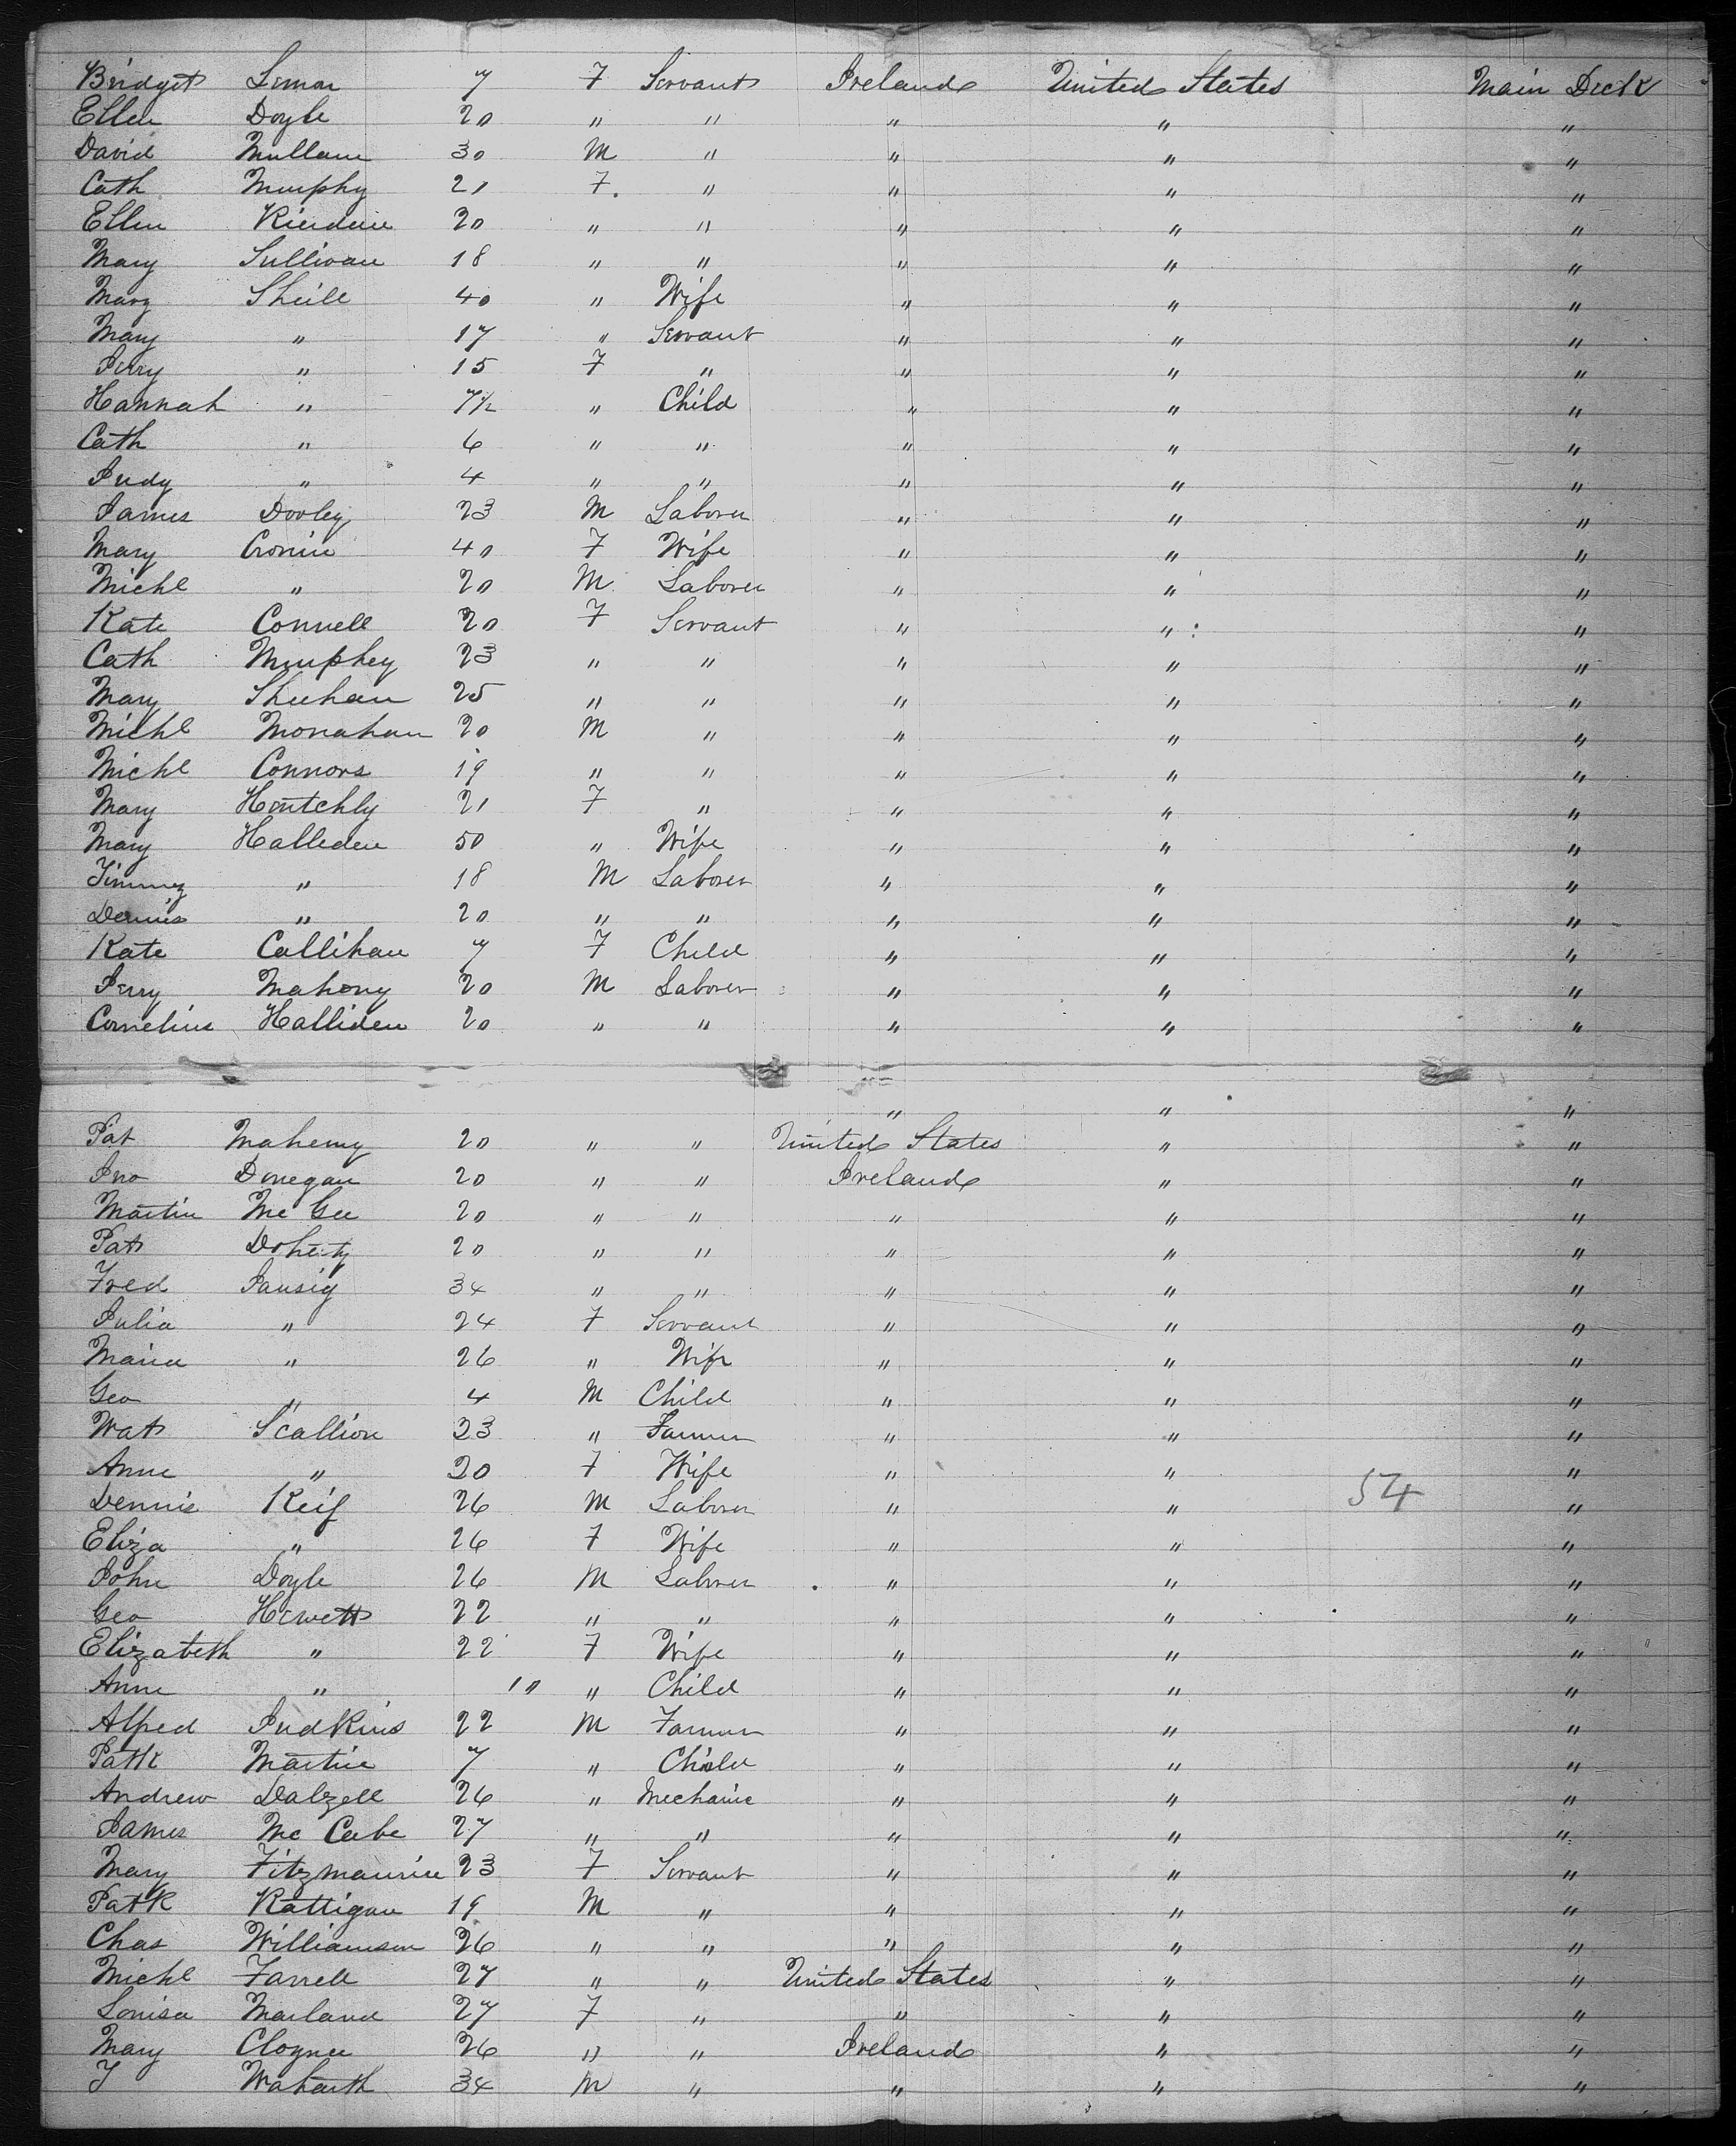 Bridget Leman 7 F Servant Ireland United States Main Deck
Ellen Doyle 20 " " " " "
David Mullane 30 M " " " "
Cath Murphy 21 F. " " " "
Ellen 20 " " " " "
Mary Sullivan 18 " " " " "
Mary Sheile 40 " Wife " " "
Mary " 17 " Servant " " "
Jerry " 15 F " " " "
Hannah " 7½ " Child " " "
Cath " 6 " " " " "
Judy " 4 " " " " "
James Dooley 23 M Laborer " " "
Mary Cronin 40 F Wife " " "
Michl " 20 M Laborer " " "
Kate Connell 20 F Servant " " "
Cath Murphey 23 " " " " "
Mary Sheehan 25 " " " " "
Michl Monahan 20 M " " " "
Michl Connors 19 " " " " "
Mary 21 F " " " "
Mary Halleden 50 " Wife " " "
Timmy " 18 M Laborer " " "
Dennis " 20 " " " " "
Kate Callihan 7 F Child " " "
Jerry Mahony 20 M Laborer " " "
Cornelius Halliden 20 " " " " "
" " "
Pat Maheny 20 " " United States " "
Jno Donegan 20 " " Ireland " "
Martin Mc Gee 20 " " " " "
Pat Doherty 20 " " " " "
Fred Jausig 34 " " " " "
Julia " 24 F Servant " " "
Maria " 26 " Wife " " "
Geo " 4 M Child " " "
Wat Scallion 23 " Farmer " " "
Anne " 20 F Wife " " "
Dennis Keif 26 M Laborer " 54 " "
Eliza " 26 F Wife " " "
John Doyle 26 M Laborer " " "
Geo Hewett 22 " " " " "
Elizabeth " 22 F Wife " " "
Anne " 10 " Child " " "
Alfred Judkins 22 M Farmer " " "
Patk Martin 7 " Child " " "
Andrew Dalzell 26 " Mechanic " " "
James Mc Cabe 27 " " " " "
Mary Fitzmaurice 23 F Servant " " "
Patk Rattigan 19 M " " " "
Chas Williamson 26 " " " " "
Michl Farrell 27 " " United States " "
Louisa Marland 27 F " " " "
Mary Cloynee 26 " " Ireland " "
J 34 M " " " "